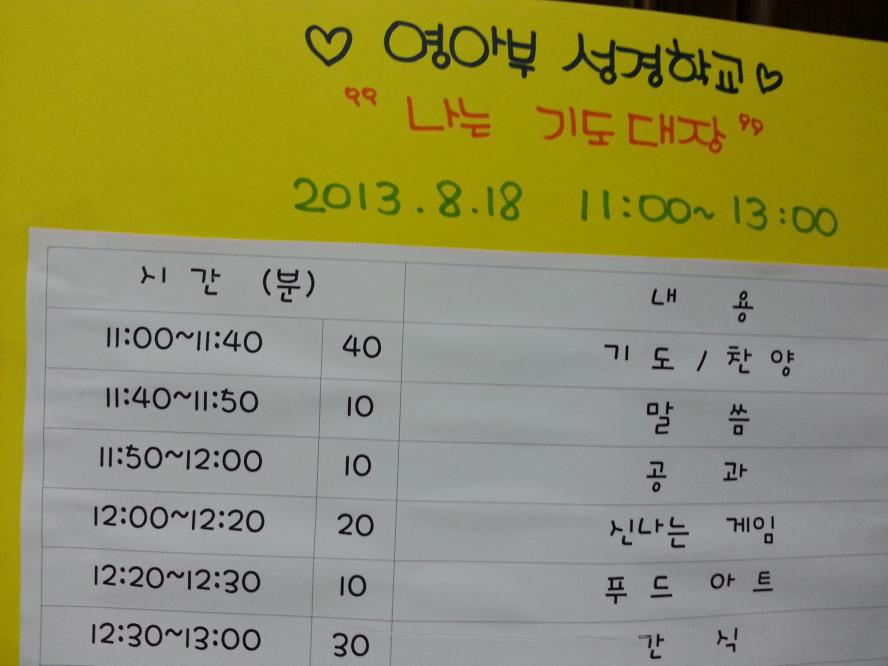 ♡ 영아부 성경학교 ♡
" 나는 기도대장 "
2013.8.18 11:00~13:00
시 간 (분) 내 용
11:00~11:40 40 기 도 / 찬 양
11:40~11:50 10 말 씀
11:50~12:00 10 공 과
12:00~12:20 20 신나는 게임
12:20~12:30 10 푸 드 아 트
12:30~13:00 30 간 식